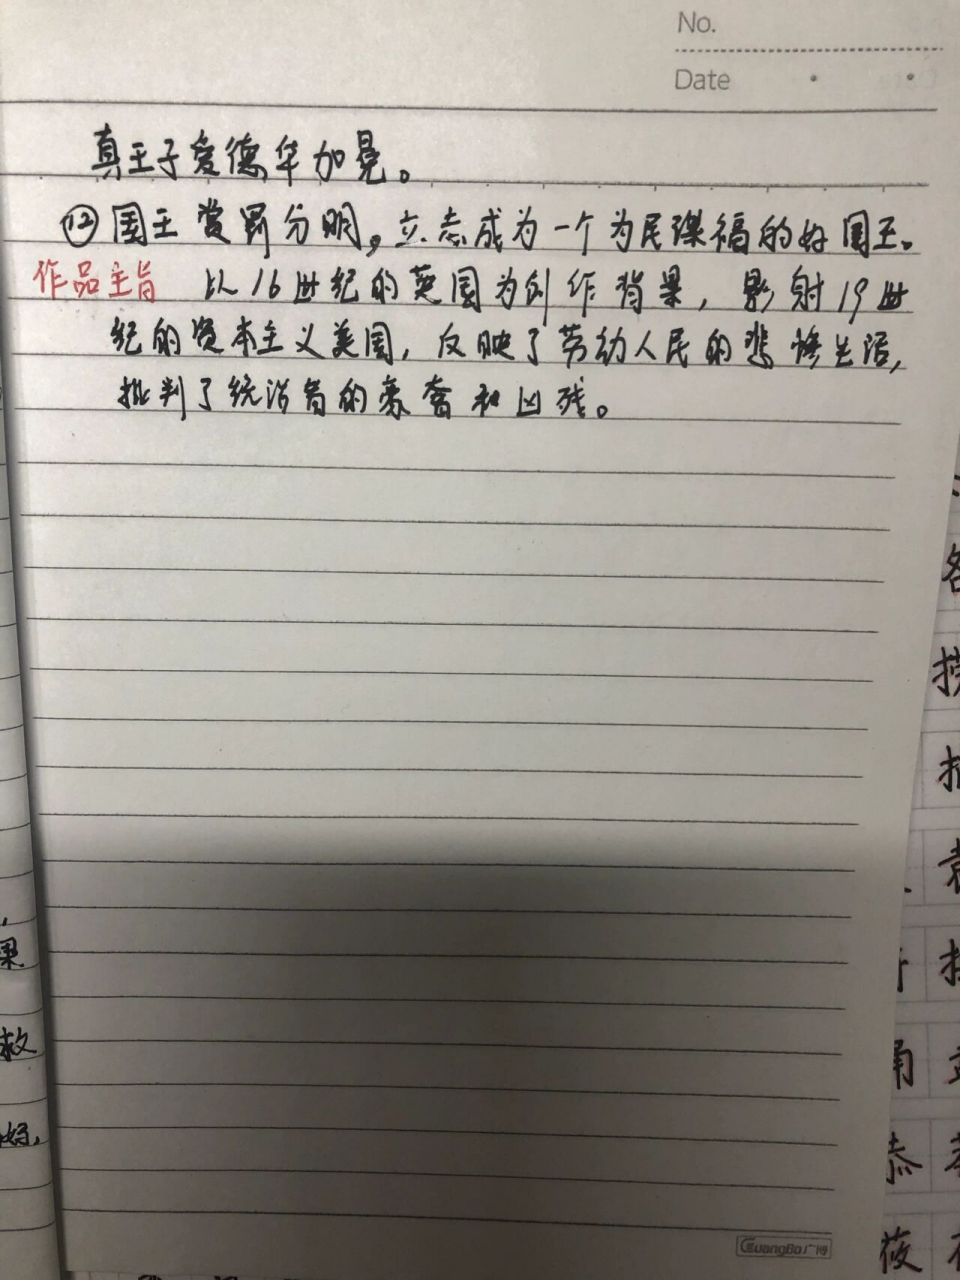 No.
Date
真王子爱德华加冕。
⑫国王赏罚分明,立志成为一个为民谋福的好国王。
作品主旨 以16世纪的英国为创作背景,影射19世
纪的资本主义美国,反映了劳动人民的悲惨生活,
批判了统治者的豪奢和凶残。
果
救
好,
各
袁
恭
莜
GuangBo广博